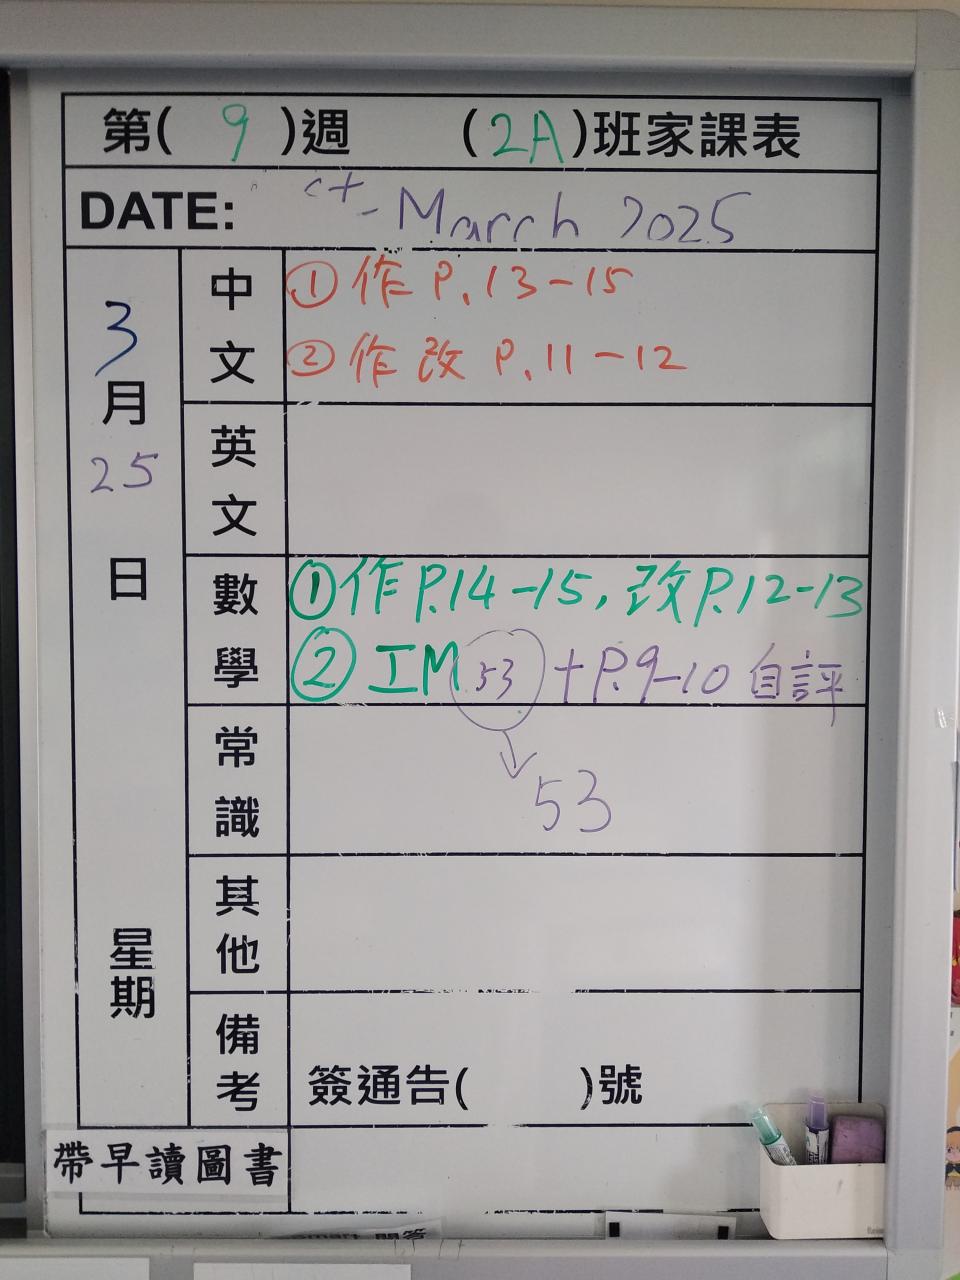 第( 9 )週 (2A)班家課表
DATE: March 2025
3月25日 星期
中文
①作 P.13-15
②作改 P.11-12
英文
數學
①作P.14-15，改P.12-13
②工M 53 + P.9-10 自評
53
常識
其他
備考
簽通告( )號
帶早讀圖書